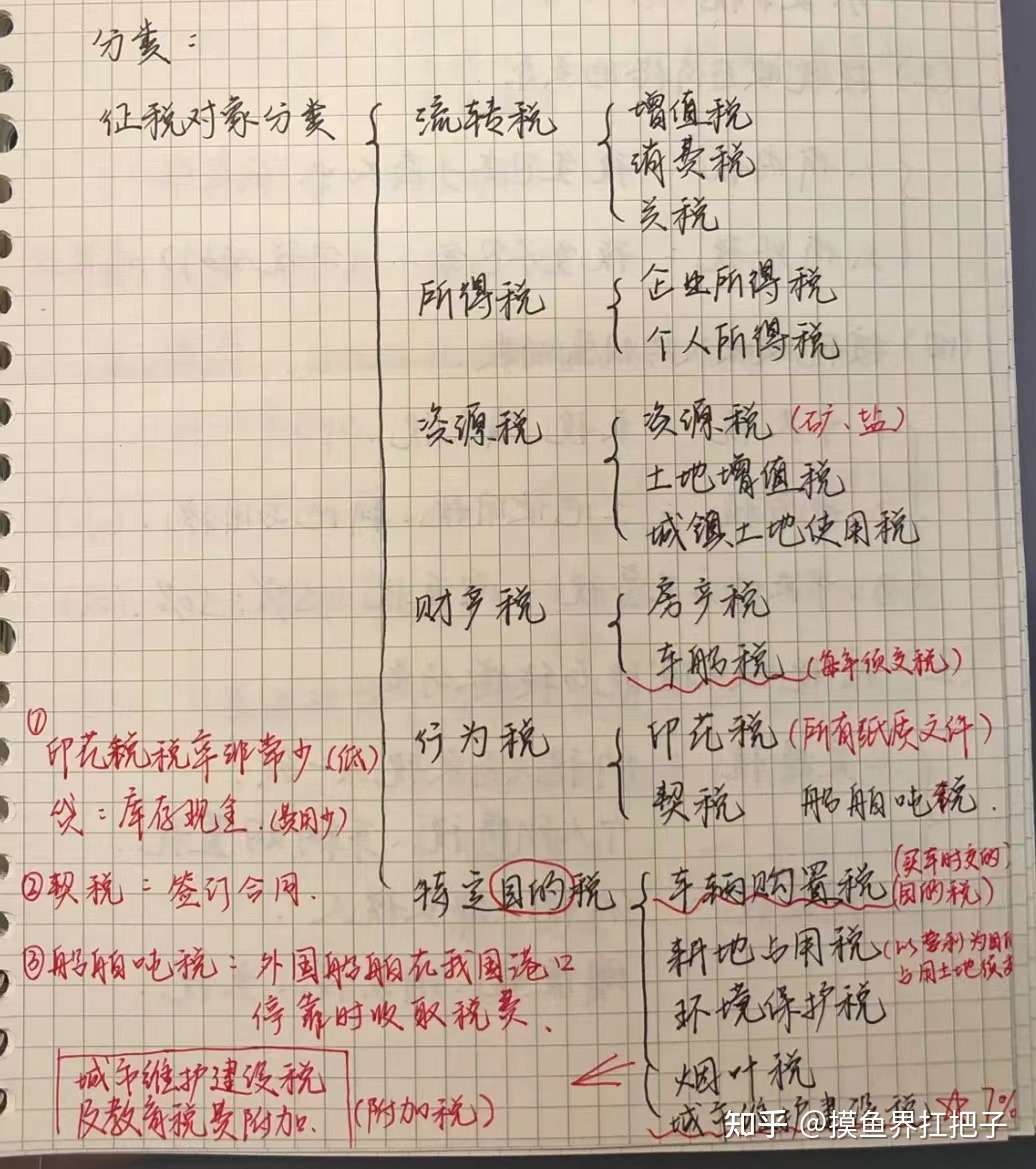 分类：
征税对象分类
流转税
增值税
消费税
关税
所得税
企业所得税
个人所得税
资源税
资源税（矿、盐）
土地增值税
城镇土地使用税
财产税
房产税
车船税（每年须交税）
行为税
印花税（所有纸质文件）
契税 船舶吨税.
特定目的税
车辆购置税（买车时交的
目的税）
耕地占用税（以营利为目的
占用土地须
环境保护税
烟叶税
城市维护建设税 ☆ 7%
①
印花税税率非常少（低）
贷：库存现金.（费用少）
②契税：签订合同.
③船舶吨税：外国船舶在我国港口
停靠时收取税费、
城市维护建设税
及教育税费附加.
（附加税）
知乎 @摸鱼界扛把子